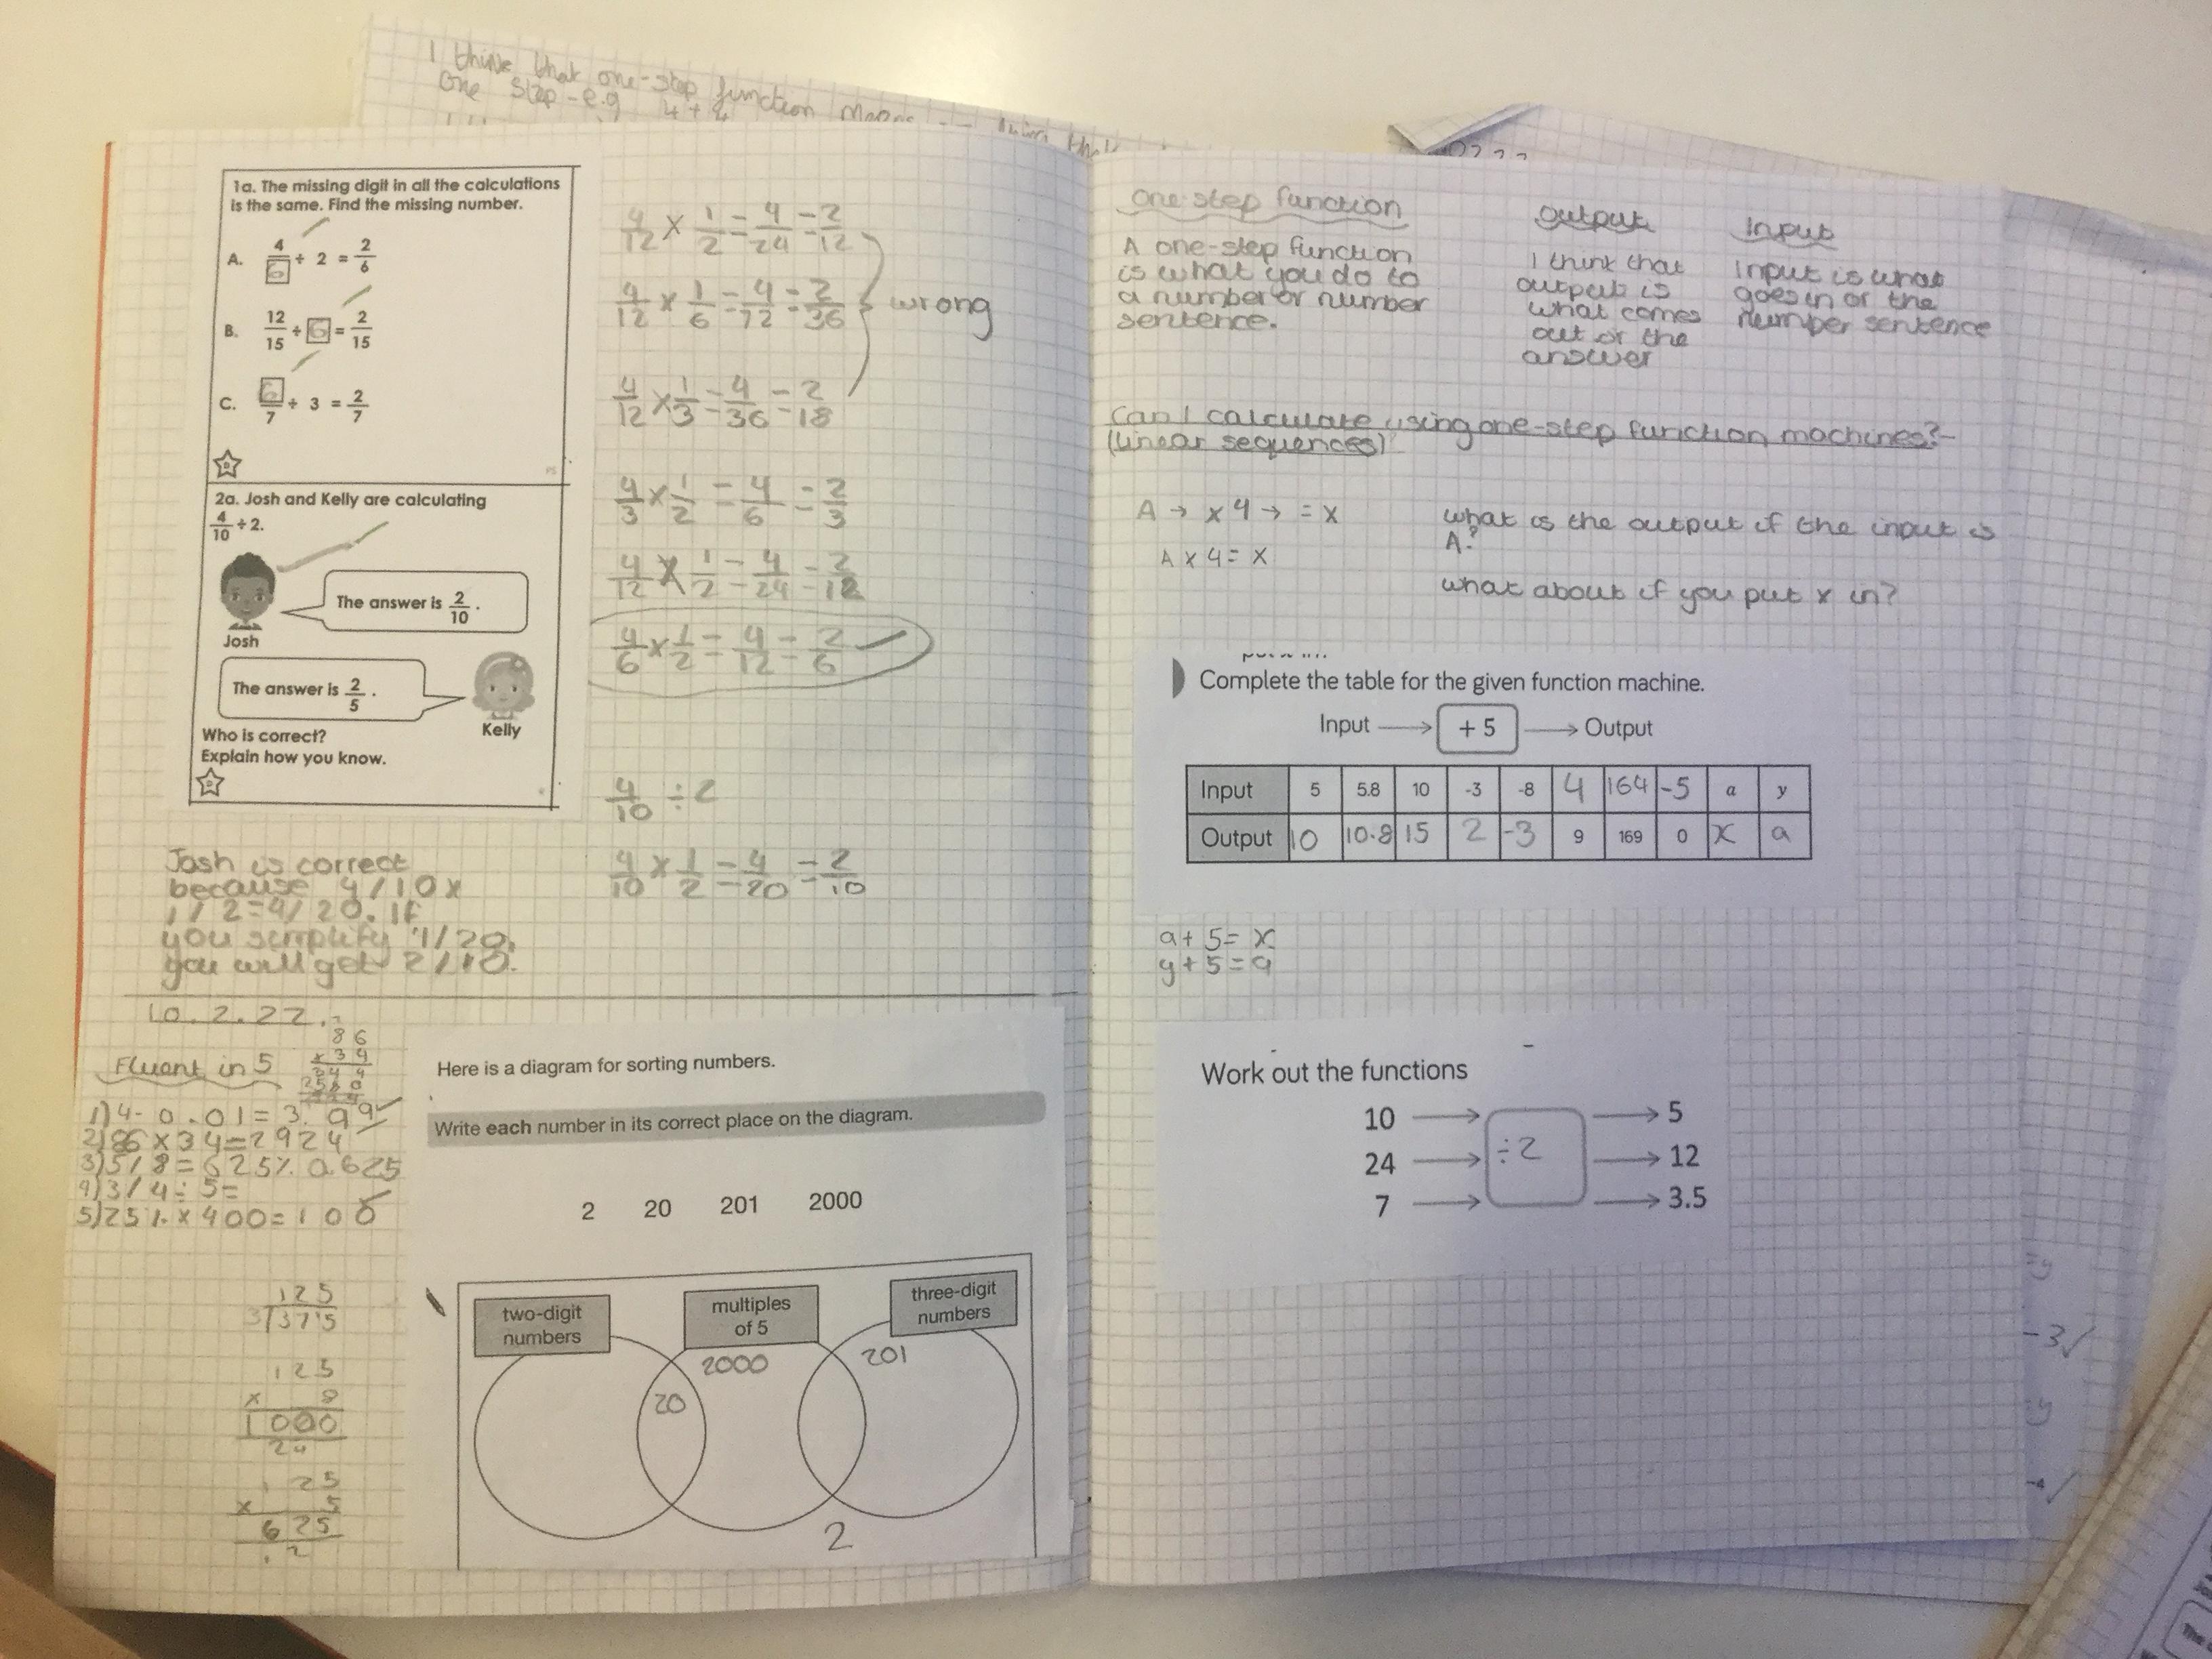 I think that one-step function means
one step - e.g 4 + 4
1a. The missing digit in all the calculations
is the same. Find the missing number.
A. 4/6 ÷ 2 = 2/6
B. 12/15 ÷ 6 = 2/15
C. 6/7 ÷ 3 = 2/7
PS
2a. Josh and Kelly are calculating
4/10 ÷ 2.
The answer is 2/10.
Josh
The answer is 2/5.
Kelly
Who is correct?
Explain how you know.
4/12 × 1/2 = 4/24 = 2/12
4/12 × 1/6 = 4/72 = 2/36
wrong
4/12 × 1/3 = 4/36 = 2/18
4/3 × 1/2 = 4/6 = 2/3
4/12 × 1/2 = 4/24 = 2/12
4/6 × 1/2 = 4/12 = 2/6
4/10 ÷ 2
4/10 × 1/2 = 4/20 = 2/10
Josh is correct
because 4/10 x
1/2=4/20. If
you simplify 4/20,
you will get 2/10.
10.2.22.
Fluent in 5
86
×34
344
1) 4- 0.01 = 3.99
2) 86 × 34 = 2924
3) 5/8 = 625% 0.625
4) 3/4 ÷ 5 =
5) 25% × 400 = 100
125
3/375
125
× 8
1000
24
125
× 5
625
12
Here is a diagram for sorting numbers.
Write each number in its correct place on the diagram.
2 20 201 2000
two-digit
numbers
multiples
of 5
three-digit
numbers
2000
201
20
2
one step function
A one-step function
is what you do to
a number or number
sentence.
output
I think that
output is
what comes
out or the
answer
Input
Input is what
goes in or the
number sentence
Can I calculate using one-step function machines?
(linear sequences)
A → × 4 → = x
A × 4 = x
what is the output if the input is
A?
what about if you put x in?
Complete the table for the given function machine.
Input + 5 Output
Input 5 5.8 10 -3 -8 4 164 -5 a y
Output 10 10.8 15 2 -3 9 169 0 x a
a + 5 = x
y + 5 = a
Work out the functions
10 5
24 ÷2 12
7 3.5
-3